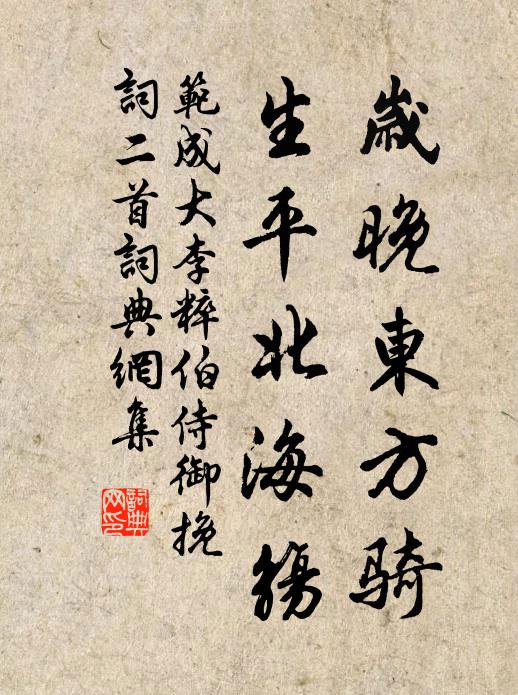 歲晚東方騎
生平北海觴
範成大李粹伯侍御挽
詞二首詞典網集
詞典
网印